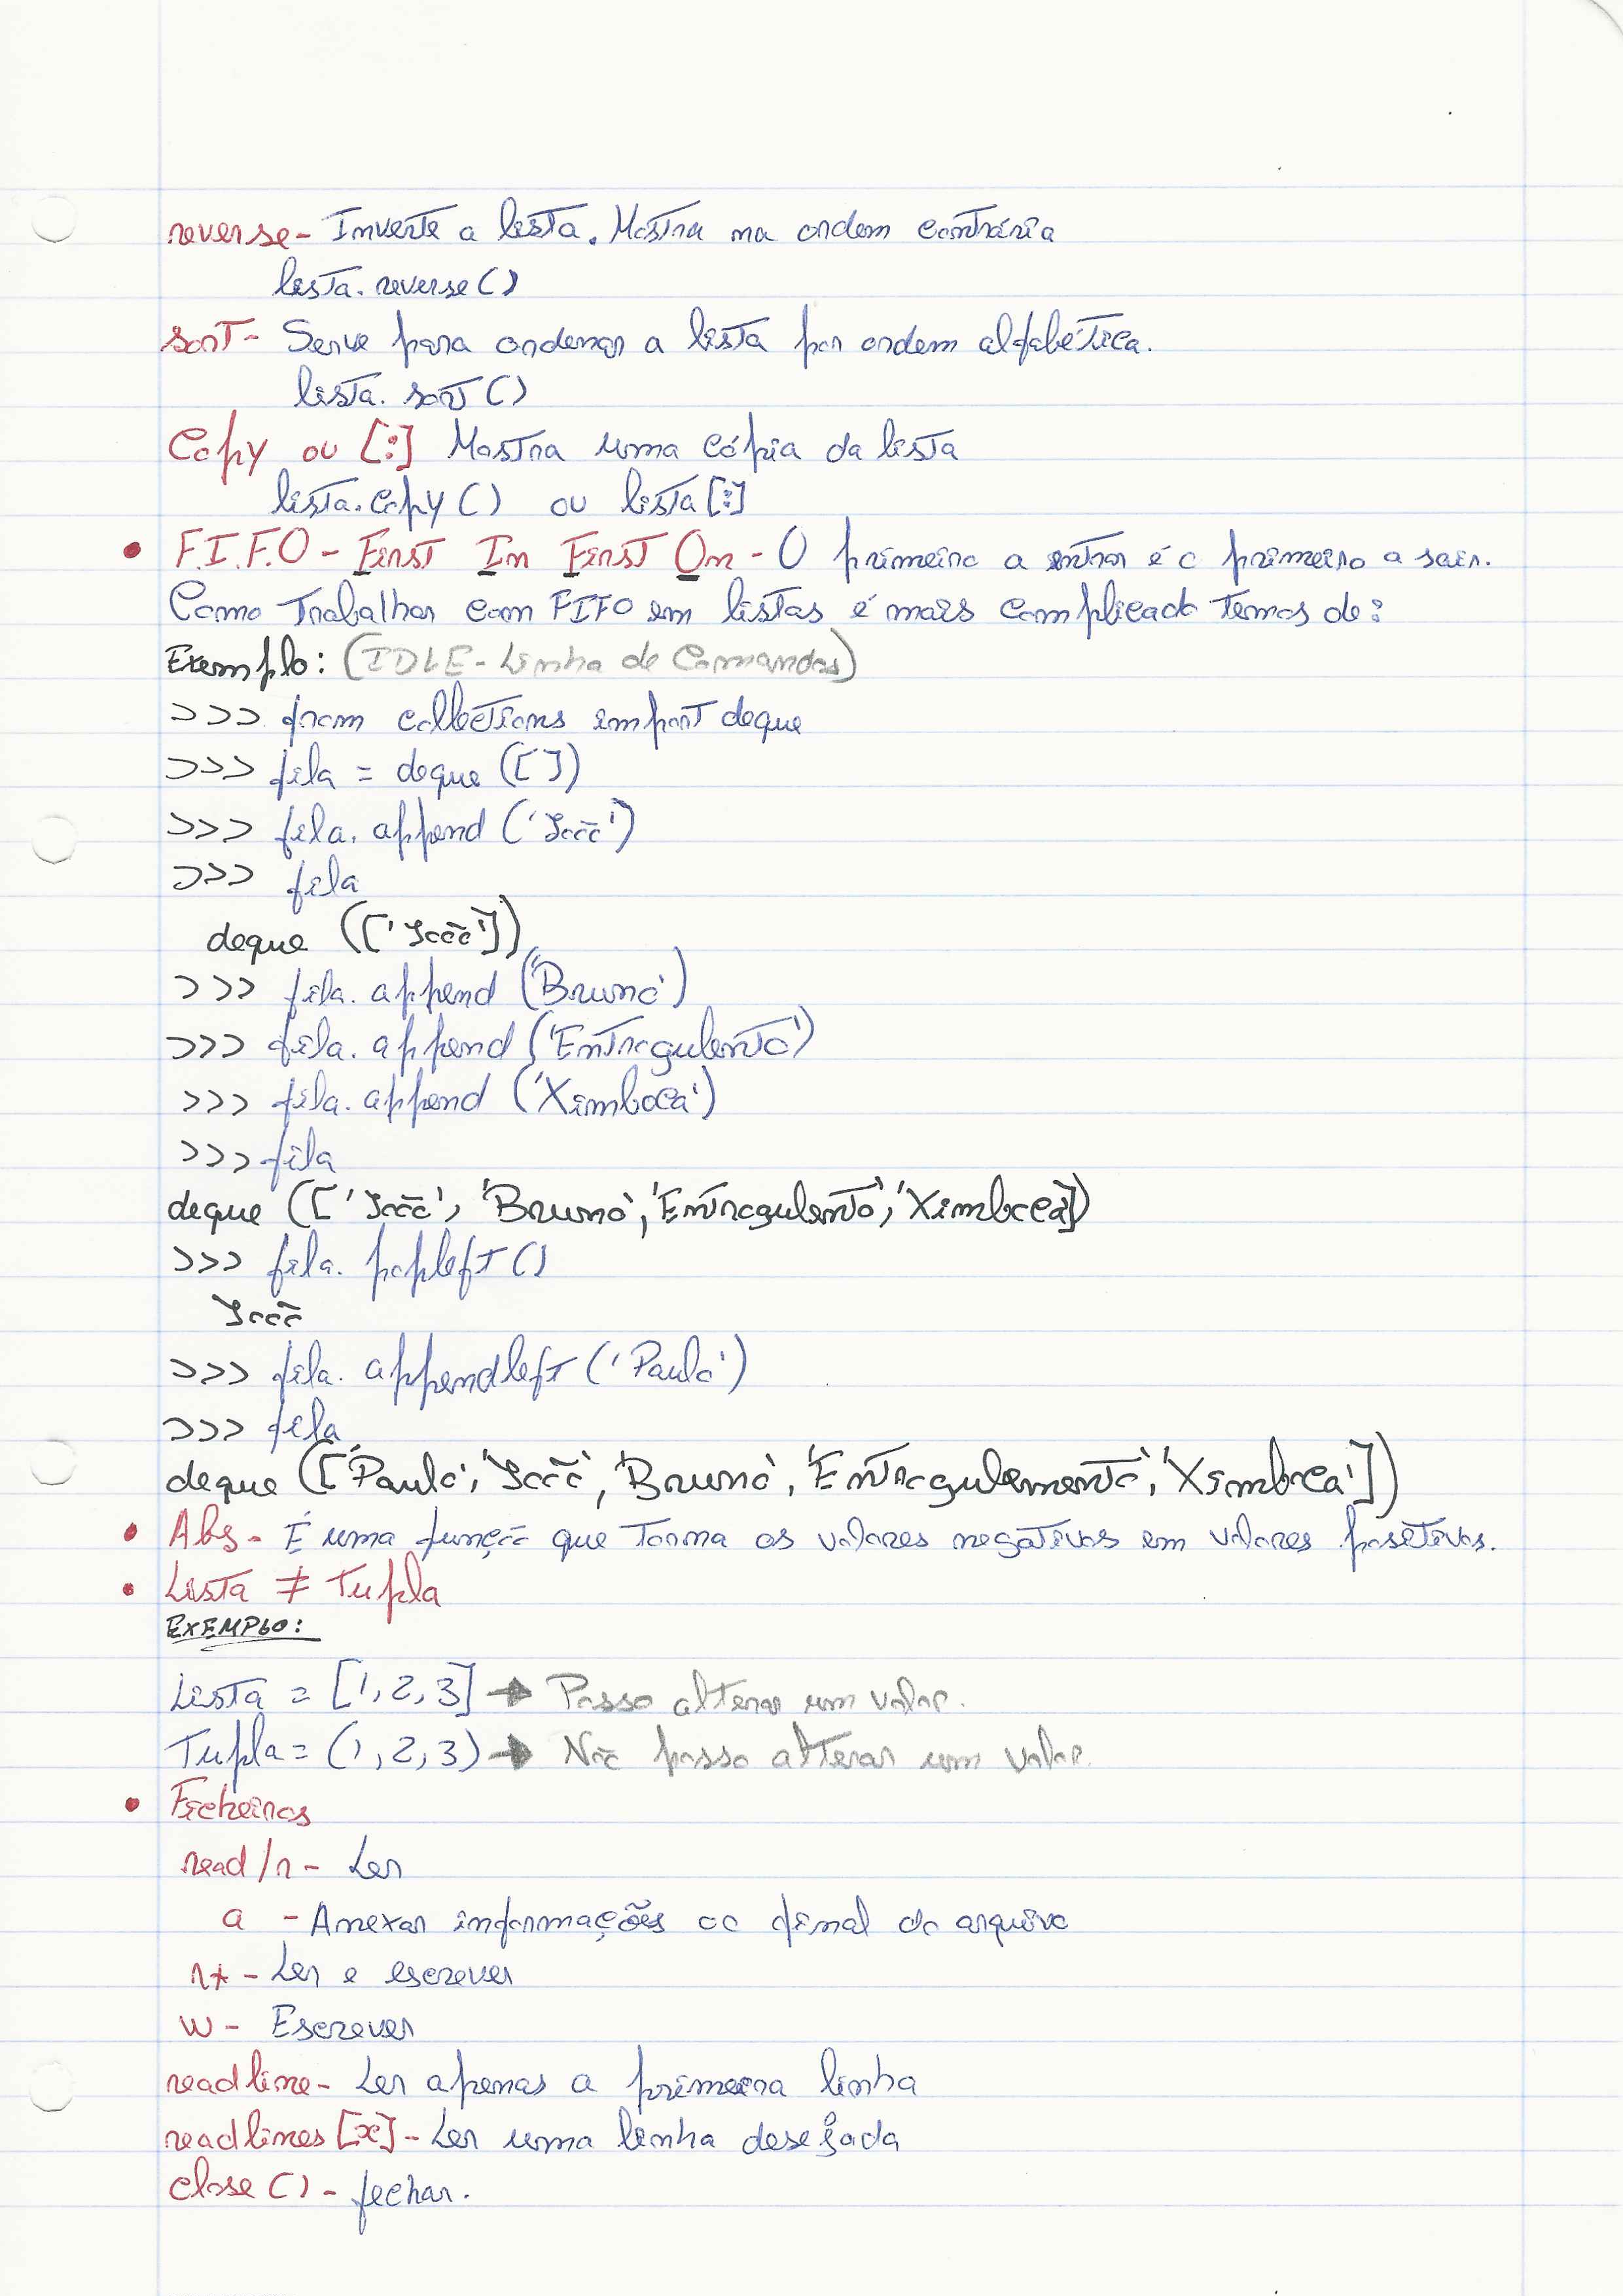 reverse- Inverte a lista. Mostra na ordem contrária
lista.reverse()
sort- Serve para ordenar a lista por ordem alfabética.
lista.sort()
Copy ou [:] Mostra uma cópia da lista
lista.copy() ou lista[:]
• F.I.F.O - First In First On - O primeiro a entrar é o primeiro a sair.
Como trabalhar com FIFO em listas é mais complicado temos de:
Exemplo: (IDLE - Linha de Comandos)
>>> from collections import deque
>>> fila = deque([])
>>> fila.append('João')
>>> fila
deque(['João'])
>>> fila.append('Bruno')
>>> fila.append('Entrogulento')
>>> fila.append('Ximboca')
>>> fila
deque(['João', 'Bruno', 'Entrogulento', 'Ximboca'])
>>> fila.popleft()
João
>>> fila.appendleft('Paulo')
>>> fila
deque(['Paulo', 'João', 'Bruno', 'Entrogulemento', 'Ximboca'])
• Abs - É uma função que torna os valores negativos em valores positivos.
• Lista ≠ Tupla
EXEMPLO:
Lista = [1, 2, 3] → Posso alterar um valor.
Tupla = (1, 2, 3) → Não posso alterar um valor.
• Ficheiros
read/r - Ler
a - Anexar informações ao final do arquivo
r+ - Ler e escrever
w - Escrever
readline - Ler apenas a primeira linha
readlines[x] - Ler uma linha desejada
close() - fechar.